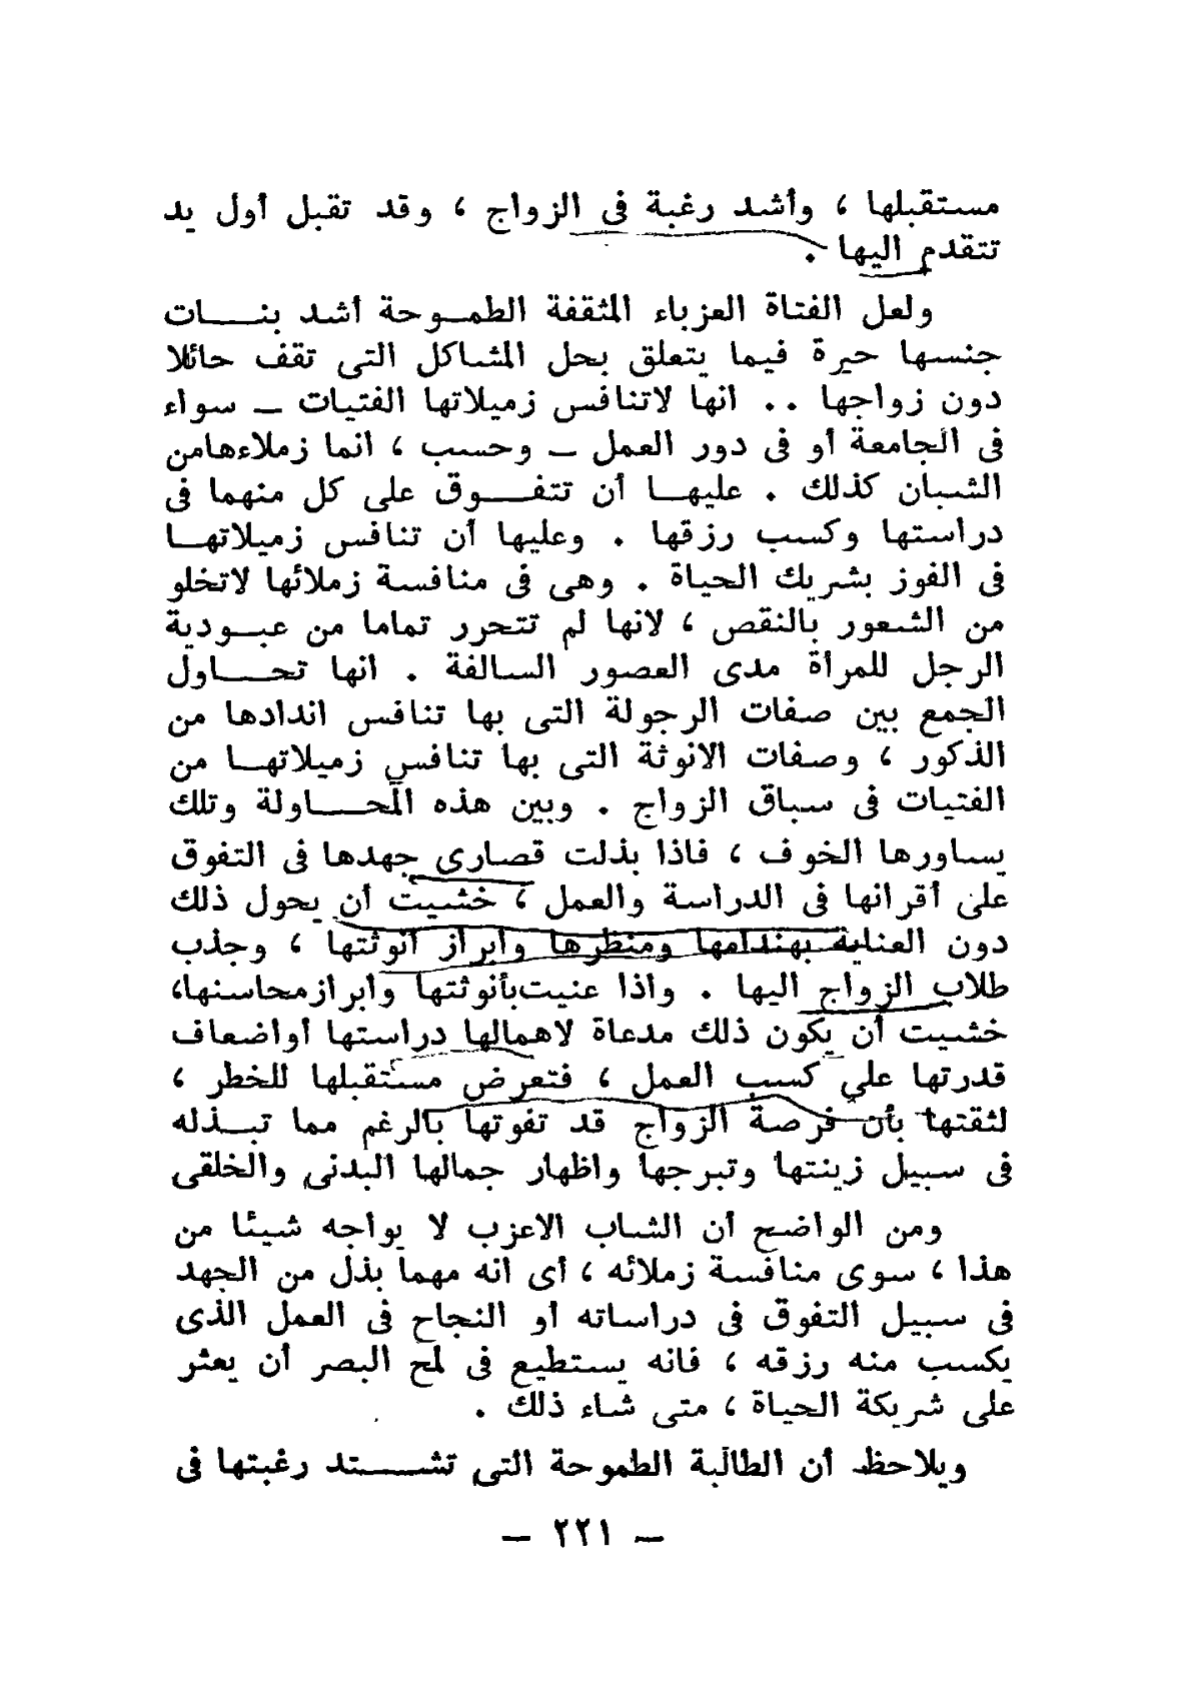 مستقبلها ، وأشد رغبة فى الزواج ، وقد تقبل أول يد
تتقدم اليها .
ولعل الفتاة العزباء المثقفة الطموحة أشد بنات
جنسها حيرة فيما يتعلق بحل المشاكل التى تقف حائلا
دون زواجها .. انها لاتنافس زميلاتها الفتيات ــ سواء
فى الجامعة أو فى دور العمل ــ وحسب ، انما زملاءهامن
الشبان كذلك . عليها أن تتفوق على كل منهما فى
دراستها وكسب رزقها . وعليها أن تنافس زميلاتها
فى الفوز بشريك الحياة . وهى فى منافسة زملائها لاتخلو
من الشعور بالنقص ، لانها لم تتحرر تماما من عبودية
الرجل للمرأة مدى العصور السالفة . انها تحاول
الجمع بين صفات الرجولة التى بها تنافس اندادها من
الذكور ، وصفات الانوثة التى بها تنافس زميلاتها من
الفتيات فى سباق الزواج . وبين هذه المحاولة وتلك
يساورها الخوف ، فاذا بذلت قصارى جهدها فى التفوق
على أقرانها فى الدراسة والعمل ، خشيت أن يحول ذلك
دون العناية بهندامها ومنظرها وابراز أنوثتها ، وجذب
طلاب الزواج اليها . واذا عنيت بأنوثتها وابراز محاسنها،
خشيت أن يكون ذلك مدعاة لاهمالها دراستها أواضعاف
قدرتها على كسب العمل ، فتعرض مستقبلها للخطر ،
لثقتها بأن فرصة الزواج قد تفوتها بالرغم مما تبذله
فى سبيل زينتها وتبرجها واظهار جمالها البدنى والخلقى
ومن الواضح أن الشاب الاعزب لا يواجه شيئا من
هذا ، سوى منافسة زملائه ، أى انه مهما بذل من الجهد
فى سبيل التفوق فى دراساته أو النجاح فى العمل الذى
يكسب منه رزقه ، فانه يستطيع فى لمح البصر أن يعثر
على شريكة الحياة ، متى شاء ذلك .
ويلاحظ أن الطالبة الطموحة التى تشتد رغبتها فى
ــ ٢٢١ ــ